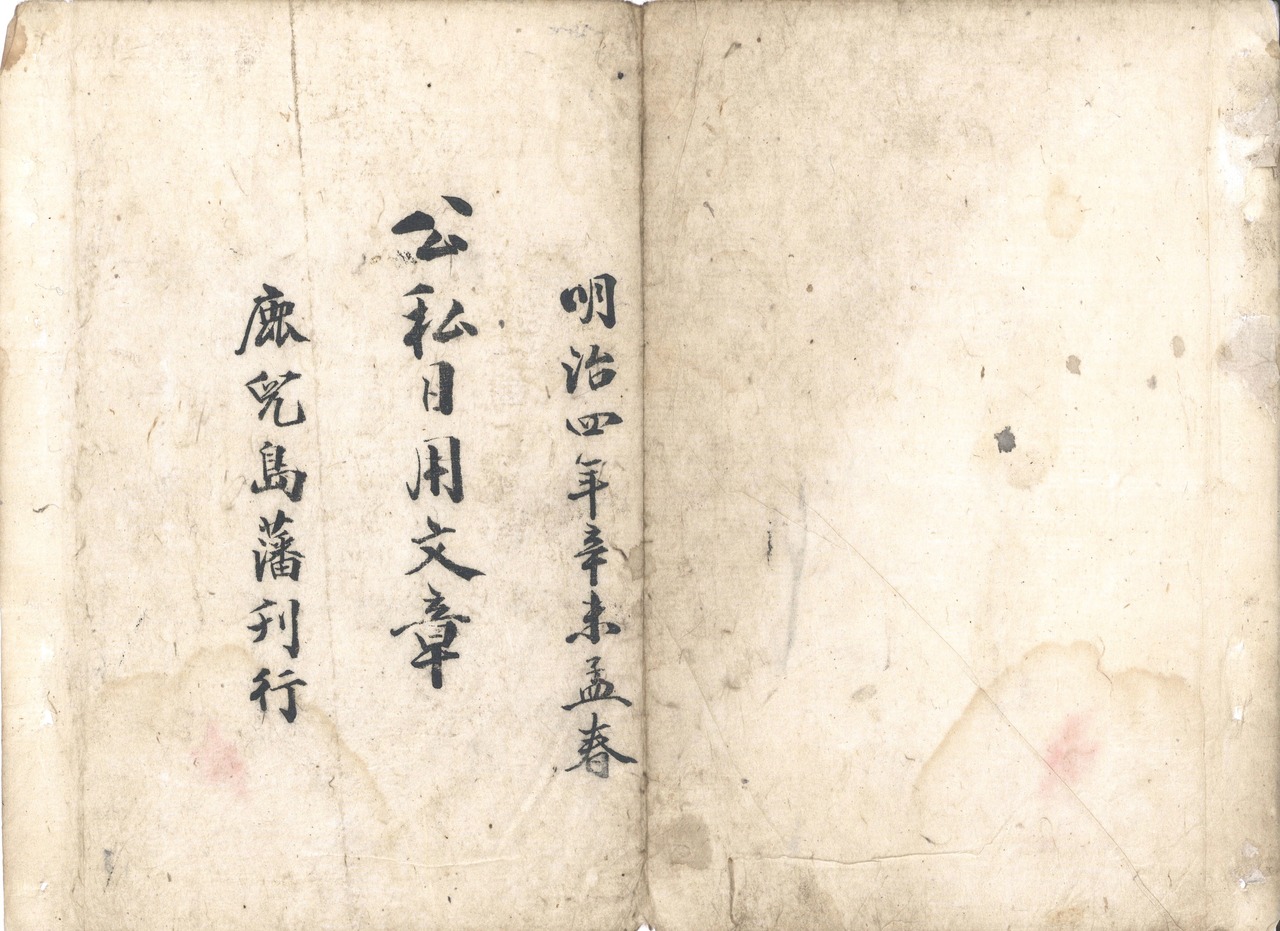 明治四年辛未孟春
公私日用文章
鹿兒島藩刊行